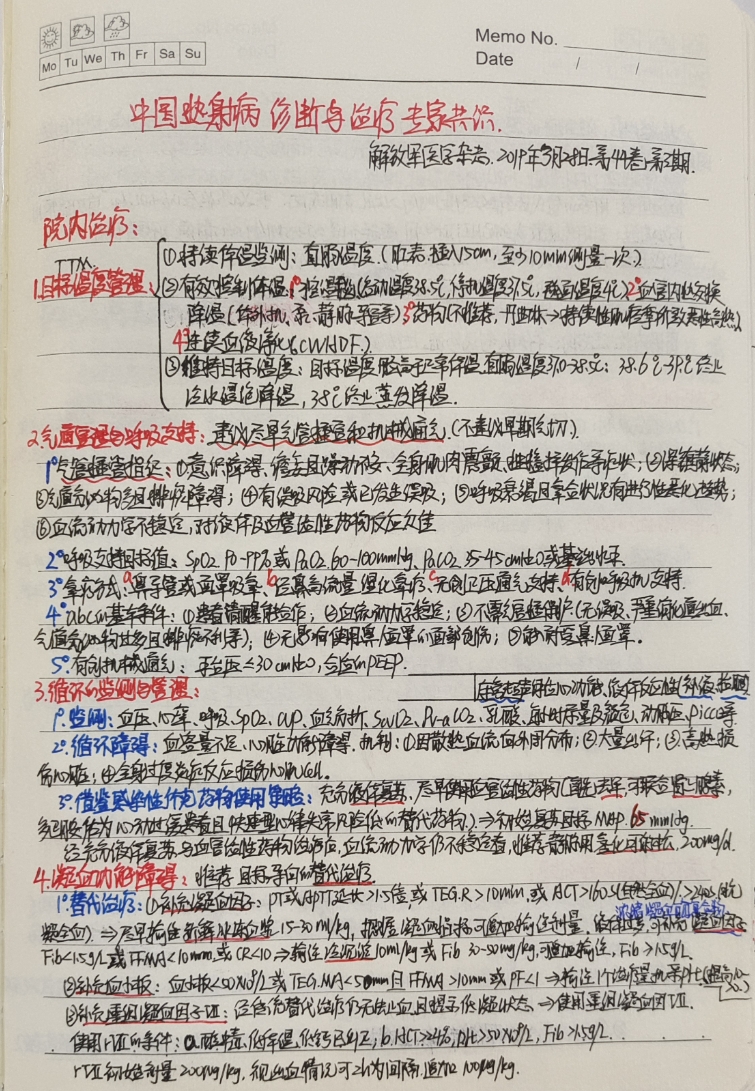 Memo No.
Mo Tu We Th Fr Sa Su
Date / /
中国热射病诊断与治疗专家共识.
解放军医学杂志. 2019年3月28日.第44卷.第3期.
院内治疗:
TTM.
1.目标温度管理:
①持续体温监测: 直肠温度.(肛表.插入15cm, 至少10min测量一次.)
②有效控制体温: 1°控温毯(启动温度38.5℃, 停机温度37.5℃, 毯面温度4℃) 2°血管内热交换
降温(体外机、泵、静脉导管等) 3°药物(不推荐,
4°连续血液净化CWHDF.)
③维持目标温度: 目标温度 直肠温度37.0-38.5℃; 38.6℃-39℃终止
冷水浸泡降温, 38℃终止蒸发降温.
2.气道管理与呼吸支持: 建议尽早气管插管和机械通气.(不建议早期气切.)
1°气管插管指征: ①意识障碍、谵妄且躁动不安、全身肌肉震颤、 等症状; ②深镇静状态;
③气道分泌物多且排痰障碍; ④有误吸风险或已发生误吸; ⑤呼吸衰竭且氧合状况有进行性恶化趋势;
⑥血流动力学不稳定, 对液体及血管活性药物反应欠佳
2°呼吸支持目标值: SpO2 90-99%或PaO2 60-100mmHg, PaCO2 35-45cmH2O或基线水平.
3°氧疗方式: a鼻导管或面罩吸氧. b经鼻高流量湿化氧疗. c无创正压通气支持. d有创呼吸机支持.
4°abc的基本条件: ①患者清醒能合作; ②血流动力学稳定; ③不需要插管保护(无误吸、严重消化道出血、
气道分泌物过多且排痰不利等); ④无影响使用鼻/面罩的面部创伤; ⑤能耐受鼻/面罩.
5°有创机械通气: 平台压≤30cmH2O, 合适的PEEP.
3.循环的监测与管理:
1°监测: 血压、心率、呼吸、SpO2、CVP、血气分析、ScvO2、Pv-aCO2、乳酸、每小时尿量及颜色、动脉压、picco等.
2°循环障碍: 血容量不足、心脏功能障碍. 机制: ①因散热血流向外周分布; ②大量出汗; ③高热损
伤心脏; ④全身过度炎症反应损伤心肌
3°借鉴感染性休克药物使用策略: 充分液体复苏, 尽早使用血管活性药物(首选去甲, 可联合肾上腺素,
多巴胺作为心动过缓患者且快速型心律失常风险低的替代药物) ⇒ 初始复苏目标MAP. 65mmHg.
经充分液体复苏与血管活性药物治疗后, 血流动力学仍不稳定者, 推荐静脉用氢化可的松, 200mg/d.
4.凝血功能障碍: 推荐目标导向的替代治疗.
1°替代治疗: ①补充凝血因子: PT或APTT延长>1.5倍, 或TEG.R>10min, 或ACT>160s
⇒ 尽早输注新鲜冰冻血浆15-30ml/kg, 根据凝血指标可追加输注剂量.
Fib<1.5g/L或FFMA<10mm, 或CR<10 ⇒ 输注冷沉淀10ml/kg或Fib 30-50mg/kg, 可追加输注, Fib>1.5g/L.
②补充血小板: 血小板<50×10⁹/L或TEG.MA<50mm且FFMA>10mm或PF<1 ⇒ 输注1个治疗量机采PLT
③补充重组凝血因子VII: 经传统替代治疗仍无法止血, 且提示低凝状态, ⇒ 使用重组凝血因子VII.
使用rVII的条件: a. 酸中毒、低体温、低钙已纠正; PLT>50×10⁹/L, Fib>1.5g/L.
rVII初始剂量200μg/kg, 视出血情况可2h为间隔, 追加100μg/kg.